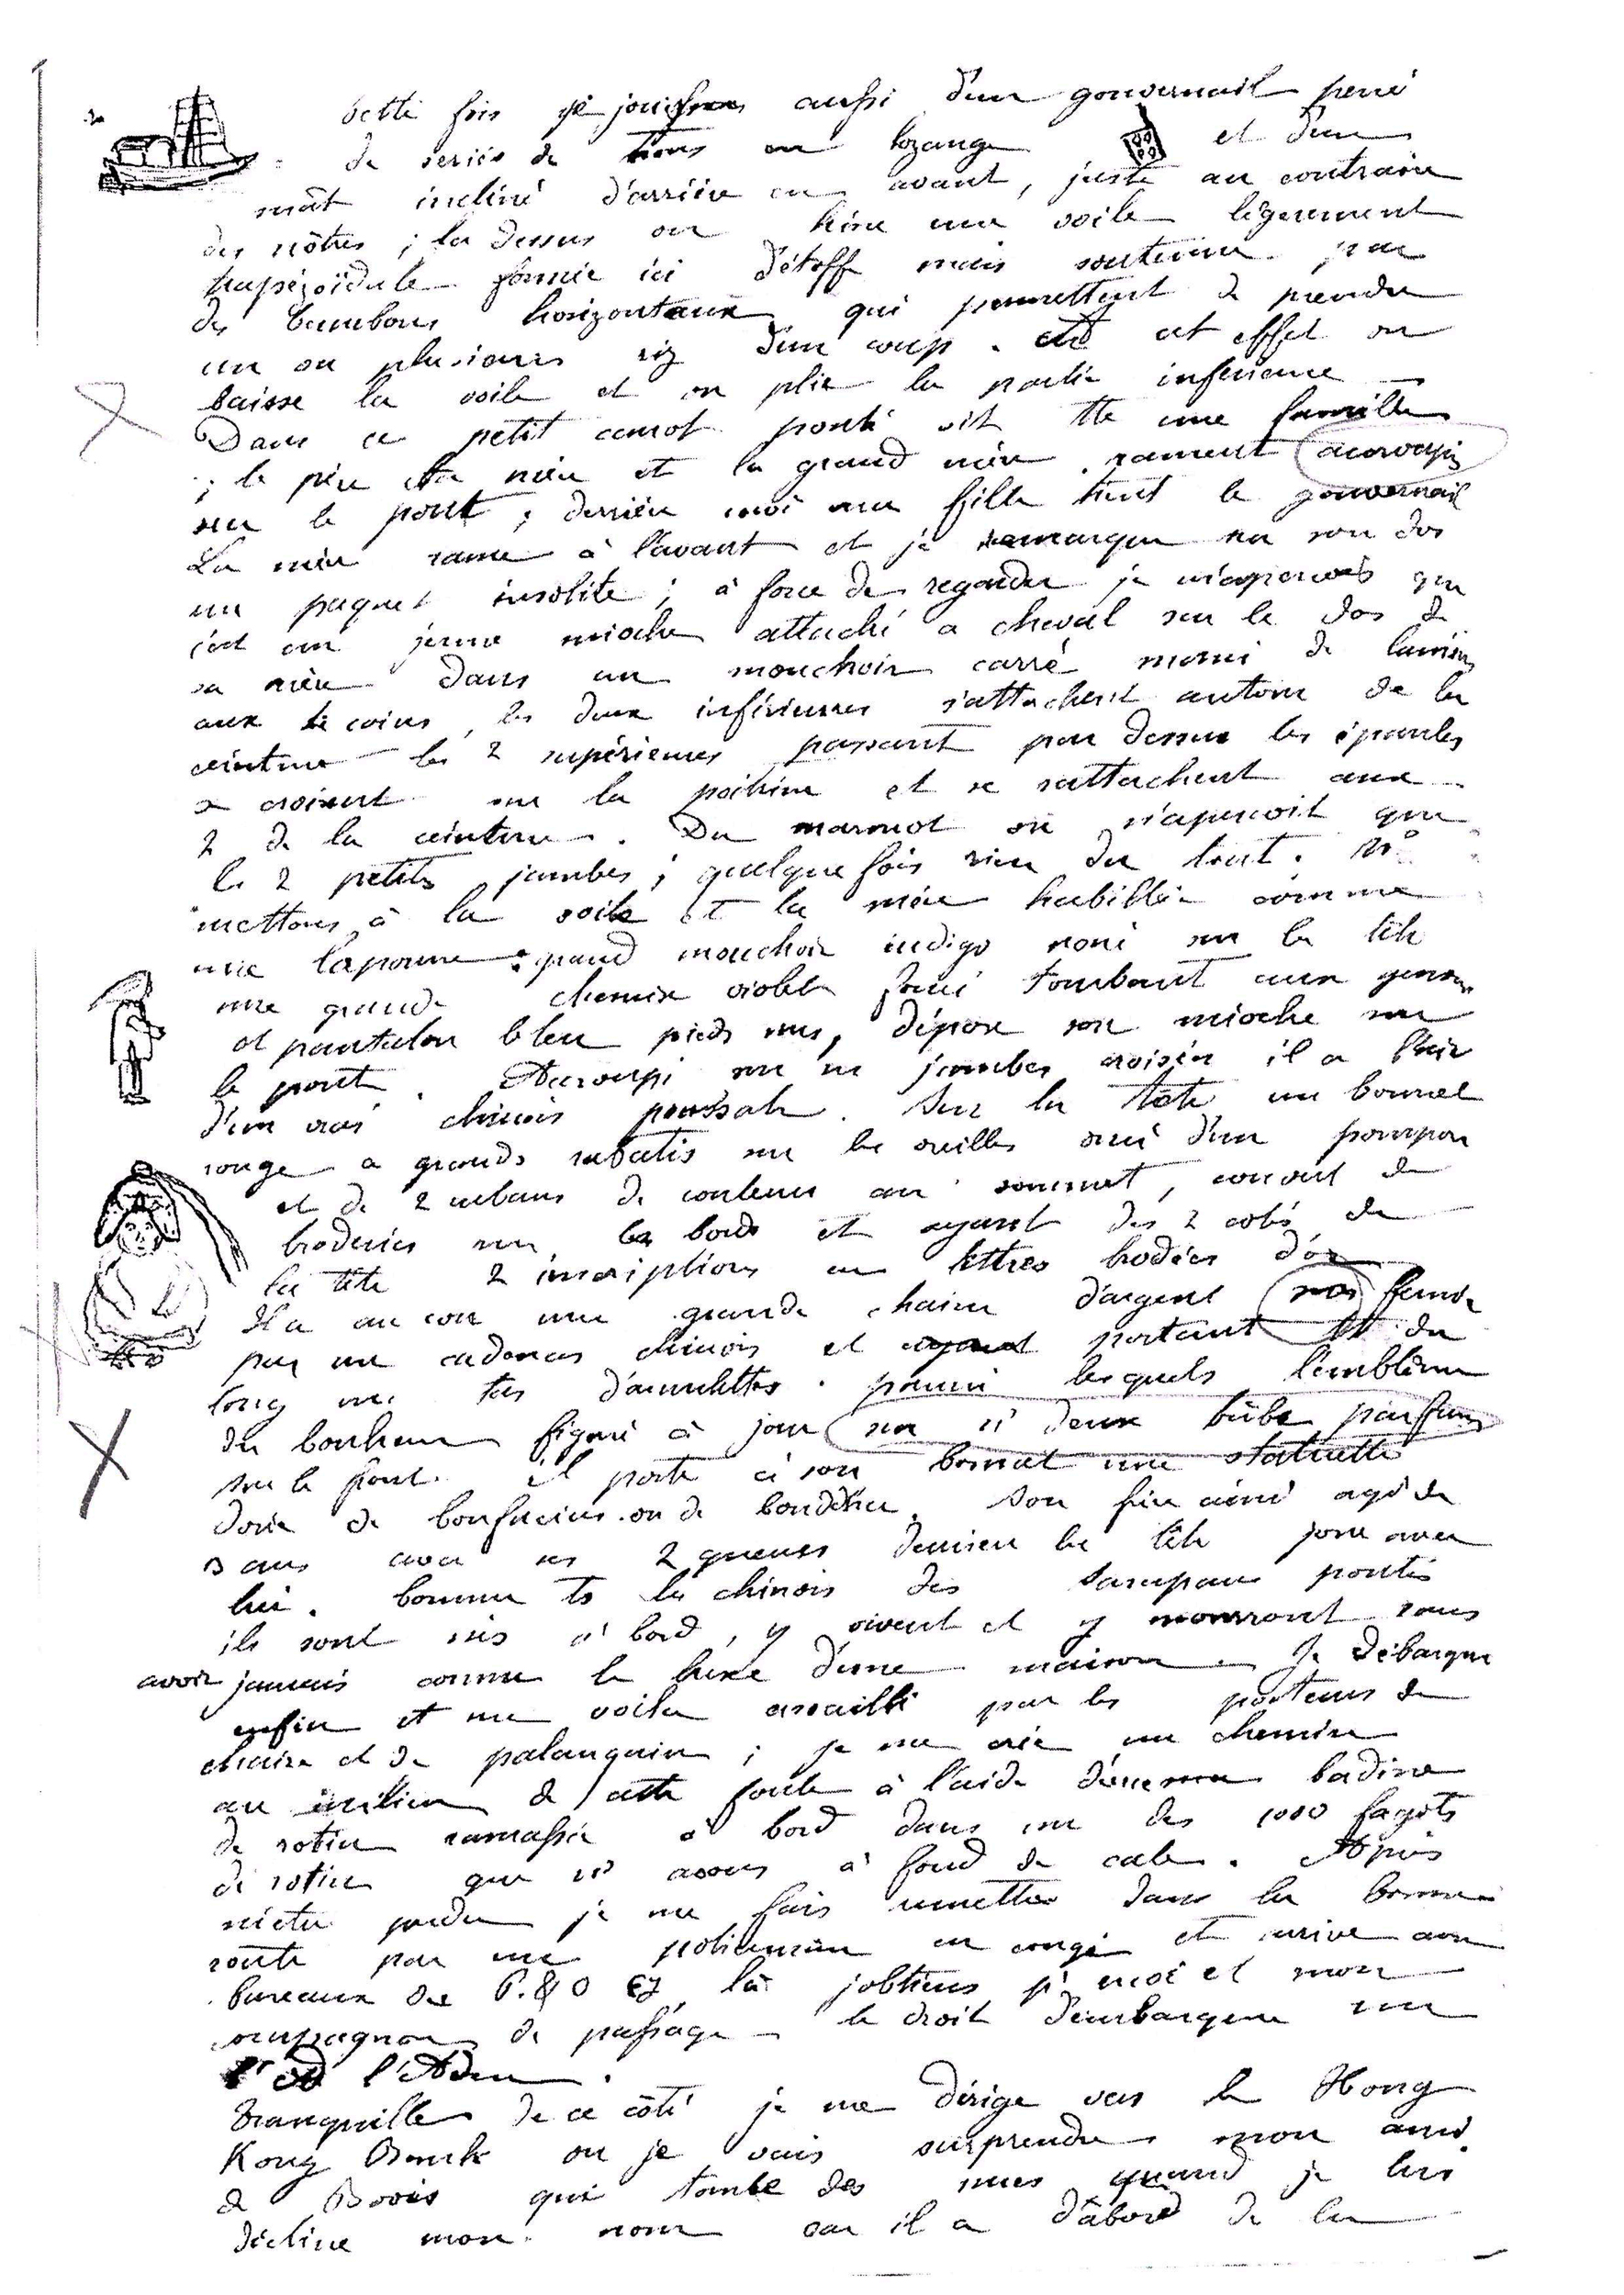 Cette fois je jouissais aussi d'un gouvernail percé
de series de trous en lozange et d'un
mât incliné d'arrière en avant, juste au contraire
des nôtres ; la dessus on hisse une voile légerement
trapézoïdale formée ici d'étoffe mais soutenue par
des bambous horizontaux qui permettent de prendre
un ou plusieurs riz d'un coup. A cet effet on
baisse la voile et on plie la partie inferieure
Dans ce petit canot ponté vit tte une famille
; le père la mère et la grand mère rament accroupis
sur le pont ; derrière moi une fille tient le gouvernail
La mère rame à l'avant et je remarque sur son dos
un paquet insolite ; à force de regarder je m'aperçois que
c'est un jeune mioche attaché a cheval sur le dos de
sa mère dans un mouchoir carré muni de lanières
aux coins, les deux inférieures s'attachent autour de la
ceinture les 2 supérieures passant par dessus les épaules
se croisent sur la poitrine et se rattachent aux
2 de la ceinture. Du marmot on n'aperçoit que
les 2 petites jambes ; quelque fois rien du tout. Ns
mettons à la voile et la mère habillée comme
une lapone : grand mouchoir indigo noué sur la tête
une grande chemise violette tombant aux genoux
et pantalon bleu pieds nus, dépose son mioche sur
le pont. Accroupi sur ses jambes croisées il a l'air
d'un vrai chinois poussah. Sur la tête un bonnet
rouge a grands rabatis sur les oreilles orné d'un pompon
et de 2 rubans de couleurs au sommet, couvert de
broderies sur les bords et ayant des 2 cotés de
la tête 2 inscriptions en lettres brodées d'or
Il a au cou une grande chaine d'argent fermée
par un cadenas chinois et portant tt du
long un tas d'amulettes. parmi lesquels l'emblême
du bonheur figuré à jour deux
sur le front. il porte à son bonnet une statuette
dorée de Confucius ou de bouddha. Son frère ainé agé de
3 ans avec ses 2 queues derrière la tête joue avec
lui. Comme ts les chinois des sampans pontés
ils sont nés à bord, y vivent et y mourront sans
avoir jamais connu le luxe d'une maison. Je débarque
enfin et me voila assailli par les porteurs de
chaise et de palanquin ; je me crée un chemin
au milieu de cette foule à l'aide d'une badine
de rotin ramassée à bord dans un des 1000 fagots
de rotin que ns avons à fond de cale. Après
m'être perdu je me fais remettre dans la bonne
route par un policeman en congé et arrive aux
bureaux de P. & O Cy là j'obtiens pr moi et mon
compagnon de passage le droit d'embarquer sur
l'Aden.
Tranquille de ce côté je me dirige vers la Hong
Kong Bank ou je vais surprendre mon ami
de Bovis qui tombe des nues quand je lui
décline mon nom car il a d'abord de la